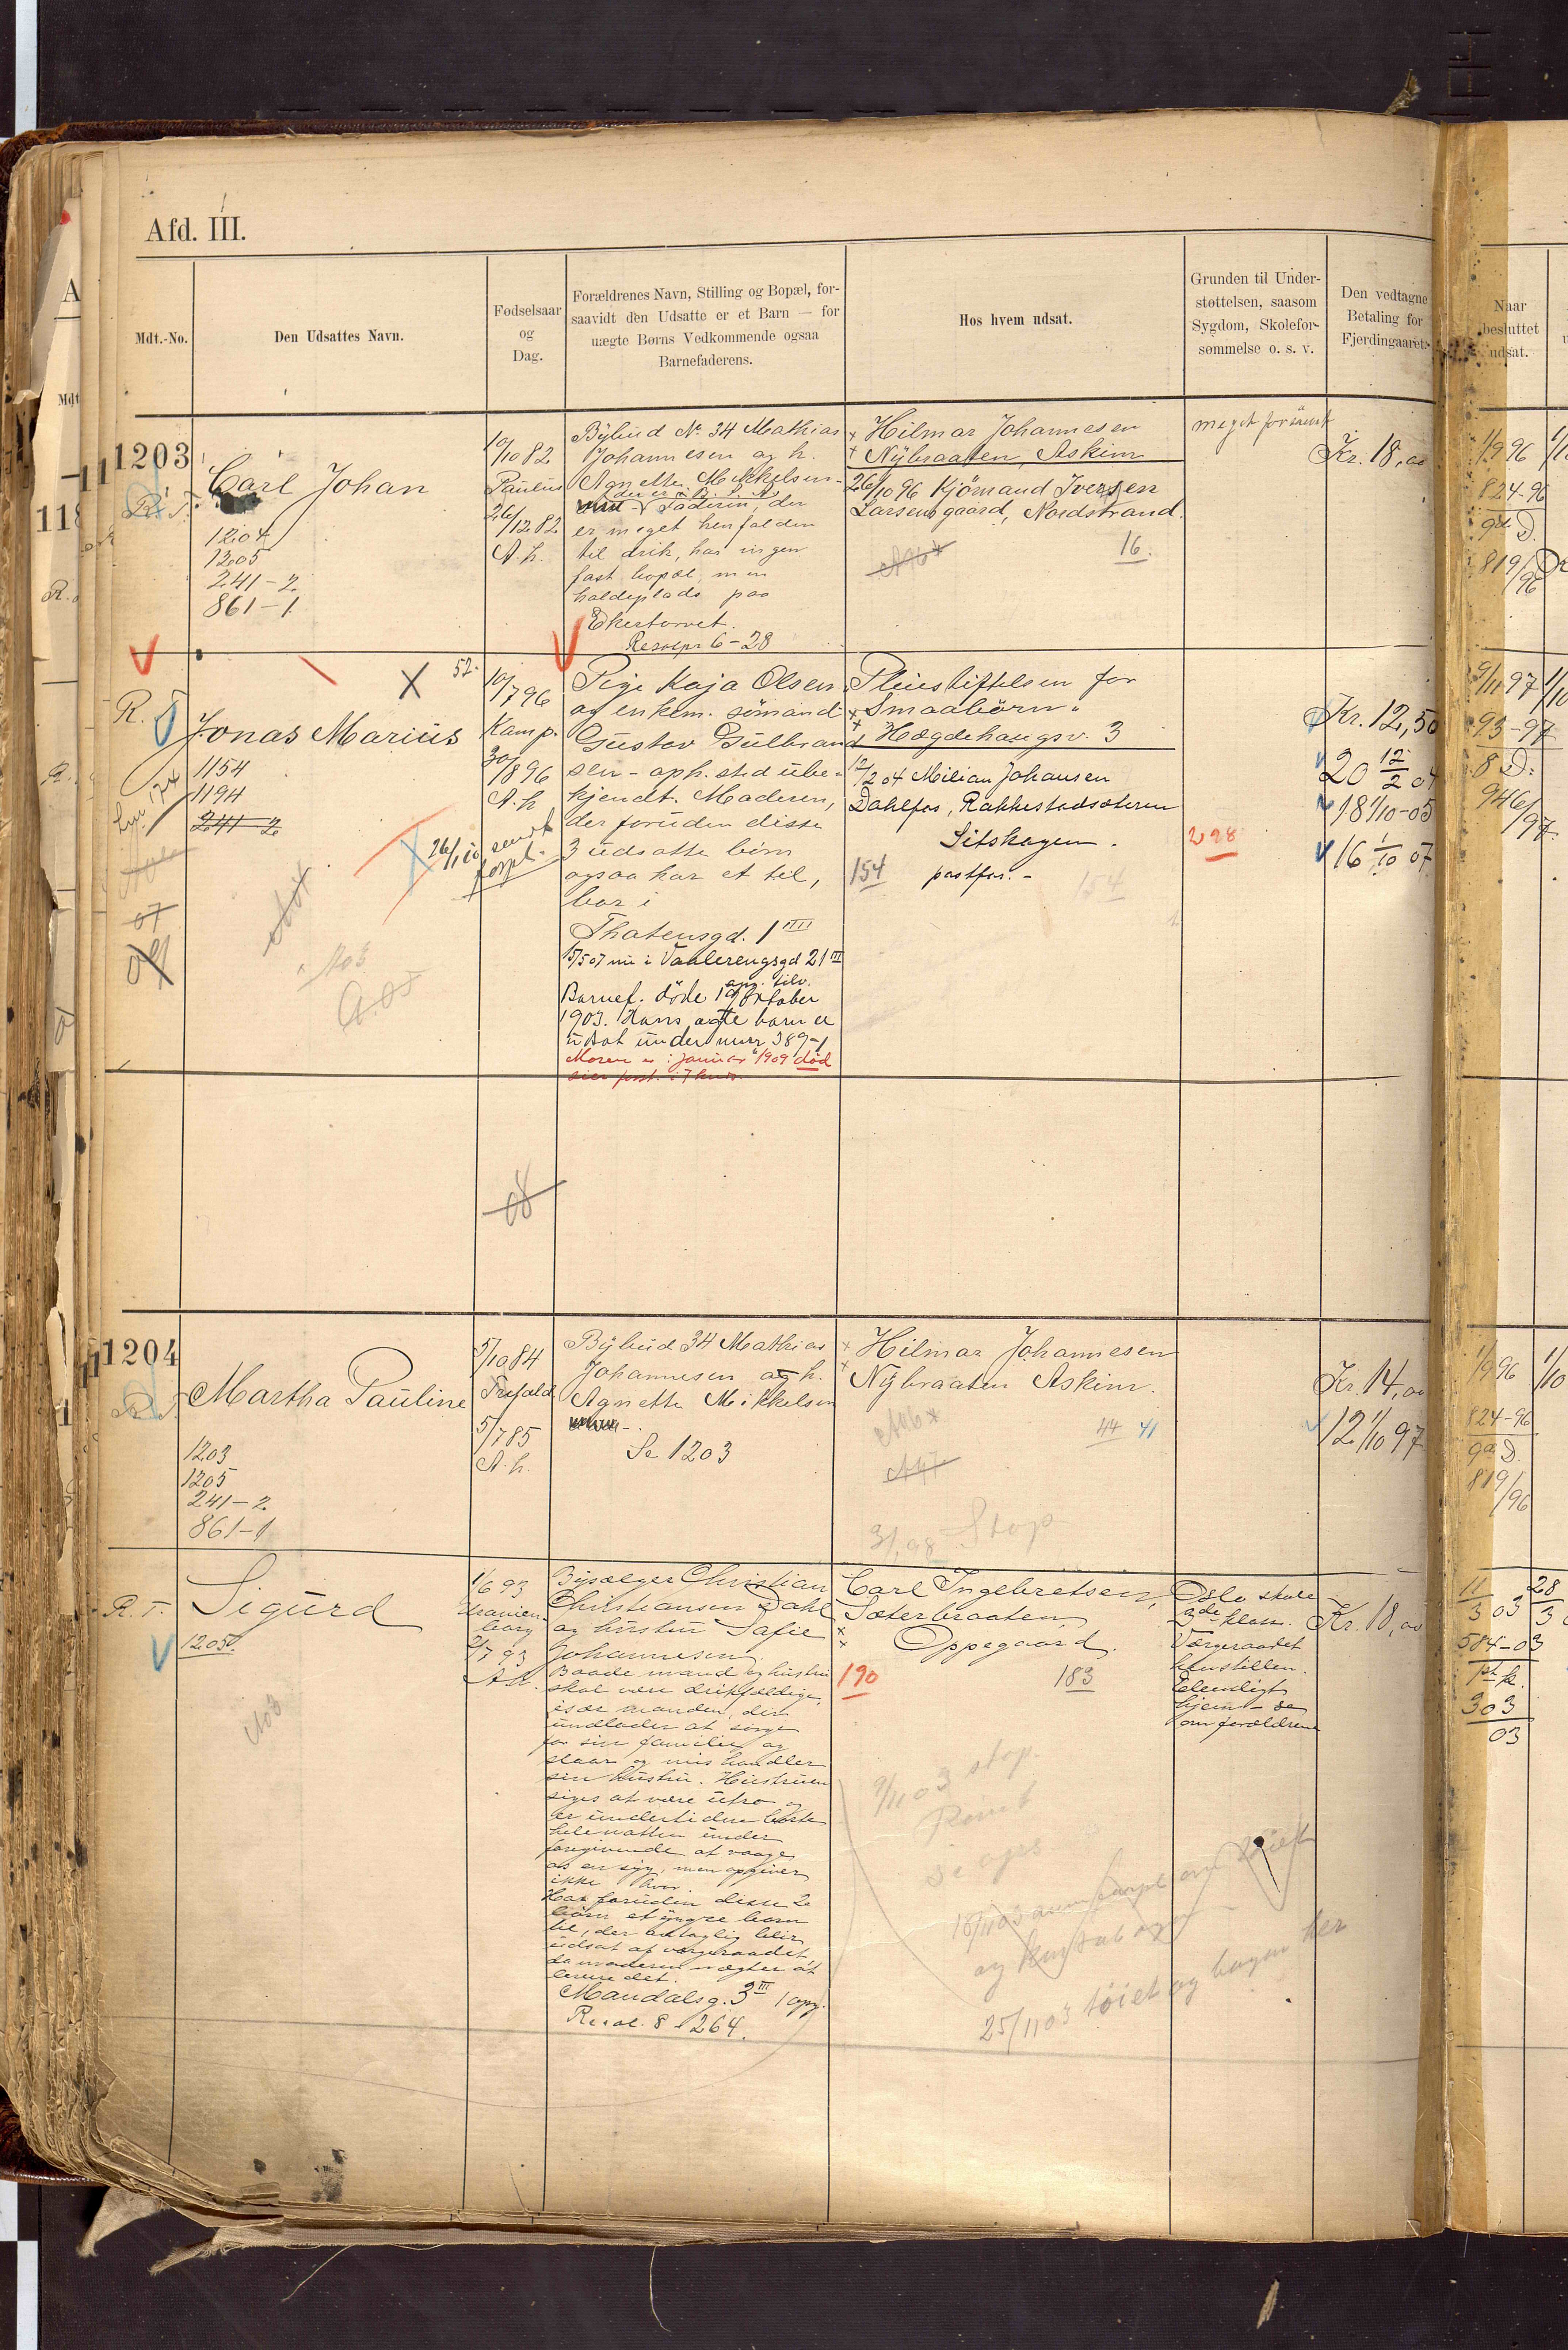 Afd. III.
Mdt.-No.
Den Udsattes Navn.
Fødselsaar
og
Dag.
Forældrenes Navn, Stilling og Bopæl, for-
saavidt den Udsatte er et Barn — for
uægte Børns Vedkommende ogsaa
Barnefaderens.
Hos hvem udsat.
Grunden til Under-
støttelsen, saasom
Sygdom, Skolefor-
sømmelse o. s. v.
Den vedtagne
Betaling for
Fjerdingaaret.
Naar
besluttet
udsat.
1203
R. T.
Carl Johan
1204
1205
241-2
861-1
10/10 82
Paulus
26/12 82
A. h.
Bybud No. 34 Mathias
Johannesen og h.
Agnette Mikkelsen
Faderen, der
er meget henfalden
til drik, har ingen
fast bopæl, men
holdeplads paa
Egertorvet.
6-28
Hilmar Johannesen
Nybraaten, Askim
26/10 96 Kjömand Iversen
Larsens gaard, Nordstrand.
16.
meget forsömt
Kr. 18,00
1/9 96
824-96
9de D.
819/96
R. T.
Jonas Marius
52.
1154
1194
241-2
10/7 96
Kamp.
30/8 96
A. h
Pige Kaja Olsen
og enkem. sömand
Gustav Gulbrand
sen - oph.sted ube-
kjendt. Moderen,
der foruden disse
3 udsatte börn
ogsaa har et til,
bor i
Thorensgd. 1 III
15/5 07 nu i Vaalerengsgd 21 III
Barnef. döde 1 Oktober
1903. Hans ægte barn er
udsat under nur 389-1
Moren er i januar 1909 död
"Pleiestiftelsen for
Smaabörn"
Hægdehaugsv. 3
12/2 04 Milian Johansen
Dahlfos, Rakkestadsæteren
Sitskogen.
154
postfor.
154
298
Kr. 12,50
20 12/2 04
18 1/10-05
16 1/10 07
9/11 97
93-97
8 D.
946/97
08
1204
R. T.
Martha Pauline
1203
1205
241-2
861-1
5/10 84
Trefold.
5/7 85
A. h.
Bybud 34 Mathias
Johannesen og h.
Agnette Mikkelsen
Se 1203
Hilmar Johannesen
Nybraaten Askim.
44 41
3/1 98 Stop
Kr. 14,00
12 1/10 97
1/9 96
824-96
9de D.
819/96
R. T.
Sigurd
1205.
1/6 93
Uranien-
borg
2/7 93
A. h.
Bysælger Christian
Christiansen Dahl
og hustru Sofie
Johannesen.
Baade mand og hustru
skal være drikfældige,
især manden, der
undlader at sörge
for sin familie og
slaar og mishandler
sin hustru. Hustruen
siges at være utro og
er undertiden borte
hele natten under
foregivende af vaage
os en syg, men opgiver
ikke hvor.
Har foruden disse 2
börn et yngre barn
til, der antaglig blir
udsat af værgeraadet,
da moderen nægter at
levere det.
Mandalsg. 3 III 1 opg.
Resol. 8-264.
Carl Ingebretsen,
Sæterbraaten
Oppegaard.
190
183
9/11 03 stop.
25/11 03 töiet og bogen her
Oslo skole
3de klasse.
Værgeraadet
henstillen.
Elendigt
hjem - se
om forældrene
Kr. 18,00
11/3 03
584-03
303
03